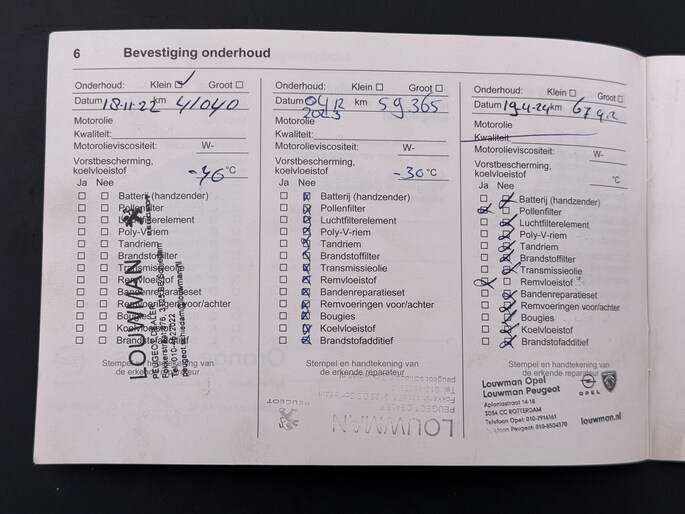 6 Bevestiging onderhoud
Onderhoud: Klein Groot
Datum 18-11-22 km 41040
Motorolie
Kwaliteit:
Motorolieviscositeit: W-
Vorstbescherming,
koelvloeistof -46 °C
Ja Nee
Batterij (handzender)
Pollenfilter
Luchtfilterelement
Poly-V-riem
Tandriem
Brandstoffilter
Transmissieolie
Remvloeistof
Bandenreparatieset
Remvoeringen voor/achter
Bougies
Koelvloeistof
Brandstofadditief
Stempel en handtekening van
de erkende reparateur
LOUWMAN
PEUGEOT
PEUGEOT DEALER
Tel. 010-4622022
Onderhoud: Klein Groot
Datum 04 12 2023 km 59365
Motorolie
Kwaliteit:
Motorolieviscositeit: W-
Vorstbescherming,
koelvloeistof -30 °C
Ja Nee
Batterij (handzender)
Pollenfilter
Luchtfilterelement
Poly-V-riem
Tandriem
Brandstoffilter
Transmissieolie
Remvloeistof
Bandenreparatieset
Remvoeringen voor/achter
Bougies
Koelvloeistof
Brandstofadditief
Stempel en handtekening van
de erkende reparateur
LOUWMAN
PEUGEOT
PEUGEOT DEALER
Onderhoud: Klein Groot
Datum 19-4-24 km
Motorolie
Kwaliteit:
Motorolieviscositeit: W-
Vorstbescherming,
koelvloeistof °C
Ja Nee
Batterij (handzender)
Pollenfilter
Luchtfilterelement
Poly-V-riem
Tandriem
Brandstoffilter
Transmissieolie
Remvloeistof
Bandenreparatieset
Remvoeringen voor/achter
Bougies
Koelvloeistof
Brandstofadditief
Stempel en handtekening van
de erkende reparateur
Louwman Opel
Louwman Peugeot
OPEL
Aploniastraat 14-18
3084 CC ROTTERDAM
Telefoon Opel: 010-2916161
Telefoon Peugeot: 010-8504370
louwman.nl